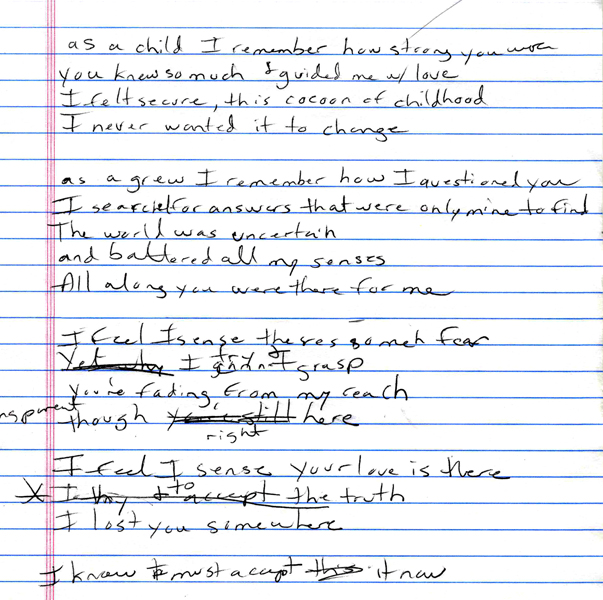 as a child I remember how strong you were
you knew so much & guided me w/ love
I felt secure, this cocoon of childhood
I never wanted it to change
as a grew I remember how I questioned you
I searched for answers that were only mine to find
The world was uncertain
and battered all my senses
All along you were there for me
I feel I sense theres so meh fear
Yet why I try I grasp
you're fading from my reach
nsparent
though you're still here
right
I feel I sense your love is there
X I try to accept the truth
I lost you somewhere
I know I must accept this it now